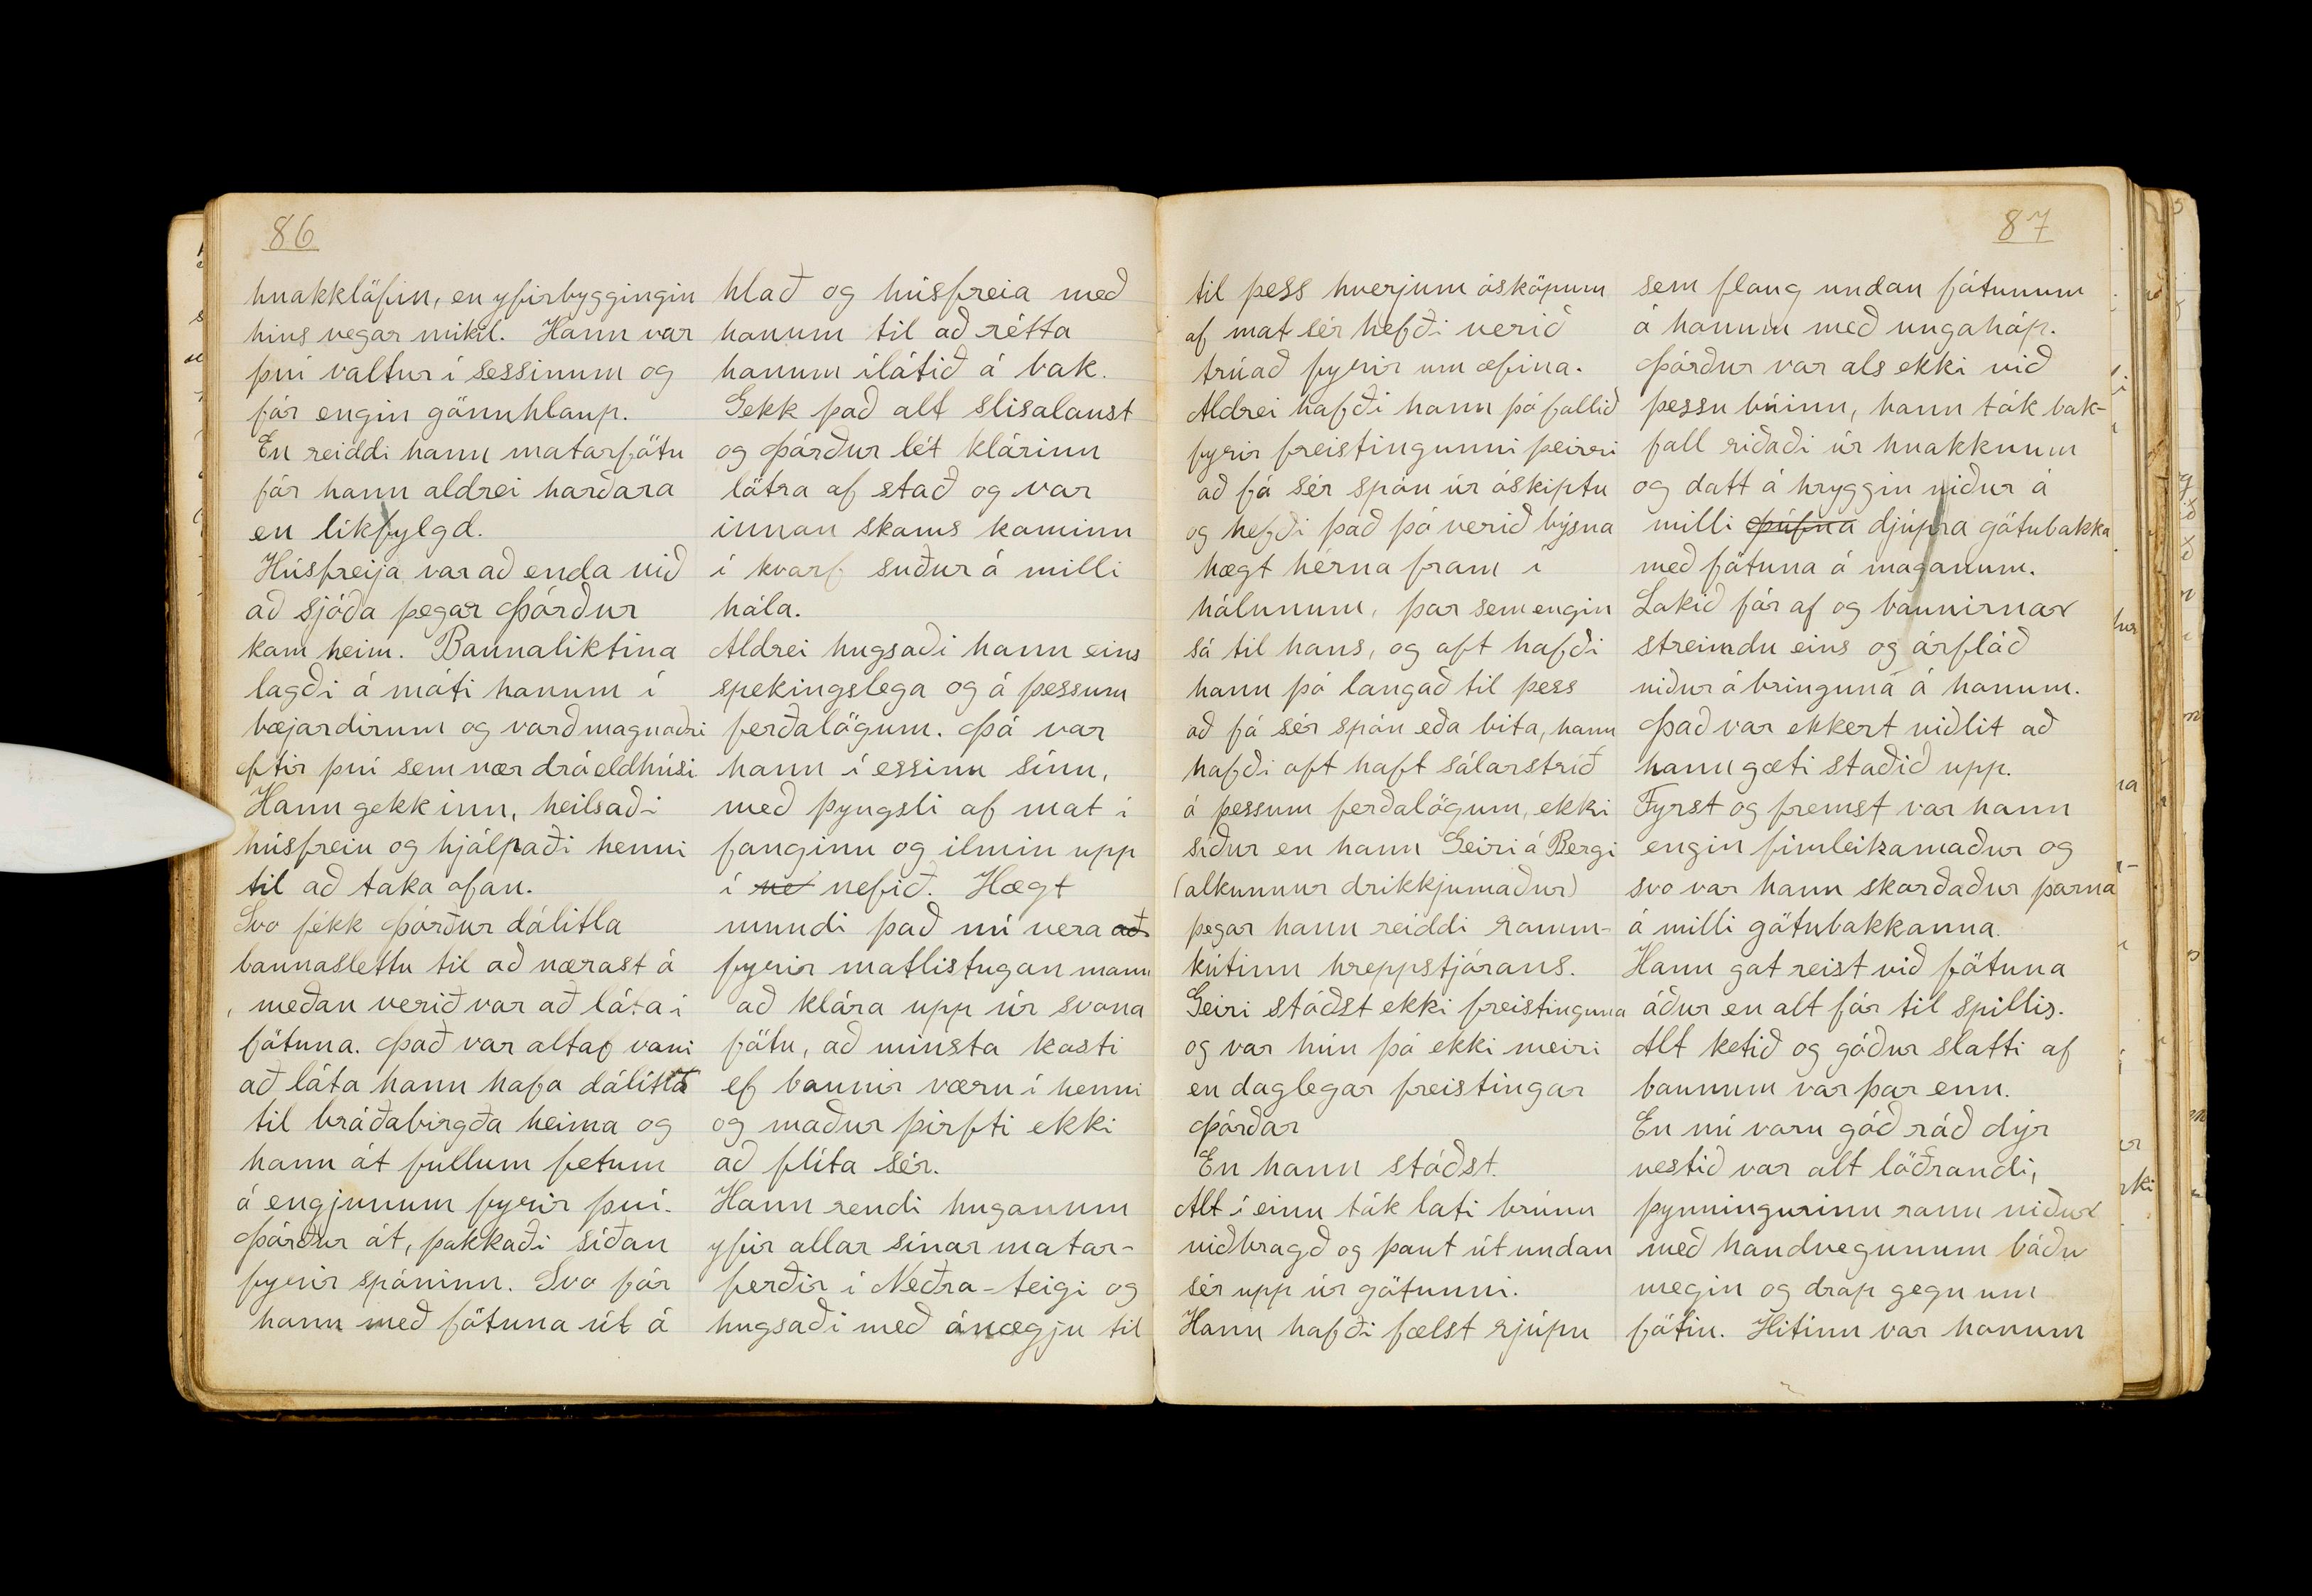 86
hnakklöfin, en yfirbyggingin
hins vegar mikil. Hann var
því valtur í sessinum og
fór engin gönuhlaup.
En reiddi hann matarfötu
fór hann aldrei harðara
en líkfylgd.
Húsfreija var að enda við
að sjóða þegar Þórður
kom heim. Baunaliktina
lagði á móti honum í
bæjardirum og varð magnaðri
eftir því sem nær dró eldhúsi
Hann gekk inn, heilsaði
húsfreiu og hjálpaði henni
til að taka ofan.
Svo fékk Þórður dálitla
baunaslettu til að nærast á
, meðan verið var að láta í
fötuna. Það var altaf vani
að láta hann hafa dálítið
til bráðabirgða heima og
hann át fullum fetum
á engjunum fyrir því.
Þórður át, þakkaði síðan
fyrir spóninn. Svo fór
hann með fötuna út á
hlað og húsfreia með
honum til að rétta
honum ílátið á bak.
Gekk það alt slisalaust
og Þórður lét klárinn
lötra af stað og var
innan skams kominn
í hvarf suður á milli
hóla.
Aldrei hugsaði hann eins
spekingslega og á þessum
ferðalögum. Þá var
hann í essinu sínu,
með þyngsli af mat í
fanginu og ilmin upp
í ne nefið. Hægt
mundi það nú vera að
fyrir matlistugan mann
að klára upp úr svona
fötu, að minsta kosti
ef baunir væru í henni
og maður þirfti ekki
að flíta sér.
Hann rendi huganum
yfir allar sínar matar-
ferðir í Neðra-teigi og
hugsaði með ánægju til
87
til þess hverjum ósköpum
af mat sér hefði verið
trúað fyrir um æfina.
Aldrei hafði hann þó fallið
fyrir freistingunni þeirri
að fá sér spón úr óskiptu
og hefði það þó verið býsna
hægt hérna fram í
hólunum, þar sem engin
sá til hans, og oft hafði
hann þó langað til þess
að fá sér spón eða bita, hann
hafði oft haft sálarstríð
á þessum ferðalögum, ekki
síður en hann Geiri á Bergi
(alkunnur drikkjumaður)
þegar hann reiddi romm-
kútinn hreppstjórans.
Geiri stóðst ekki freistinguna
og var hún þó ekki meiri
en daglegar freistingar
Þórðar
En hann stóðst.
Alt í einu tók lati brúnn
viðbragð og þaut út undan
sér upp úr götunni.
Hann hafði fælst rjúpu
sem flaug undan fótunum
á honum með ungahóp.
Þórður var als ekki við
þessu búinn, hann tók bak-
fall riðaði úr hnakknum
og datt á hryggin niður á
milli þúfna djúpra götubakka
með fötuna á maganum.
Lokið fór af og baunirnar
streimdu eins og árflóð
niður á bringuna á honum.
Það var ekkert viðlit að
hann gæti staðið upp.
Fyrst og fremst var hann
engin fimleikamaður og
svo var hann skorðaður þarna
á milli götubakkanna.
Hann gat reist við fötuna
áður en alt fór til spillis.
Alt ketið og góður slatti af
baunum var þar enn.
En nú voru góð ráð dýr
vestið var alt löðrandi,
þynningurinn rann niður
með handvegunum báðu
megin og drap gegn um
fötin. Hitinn var honum